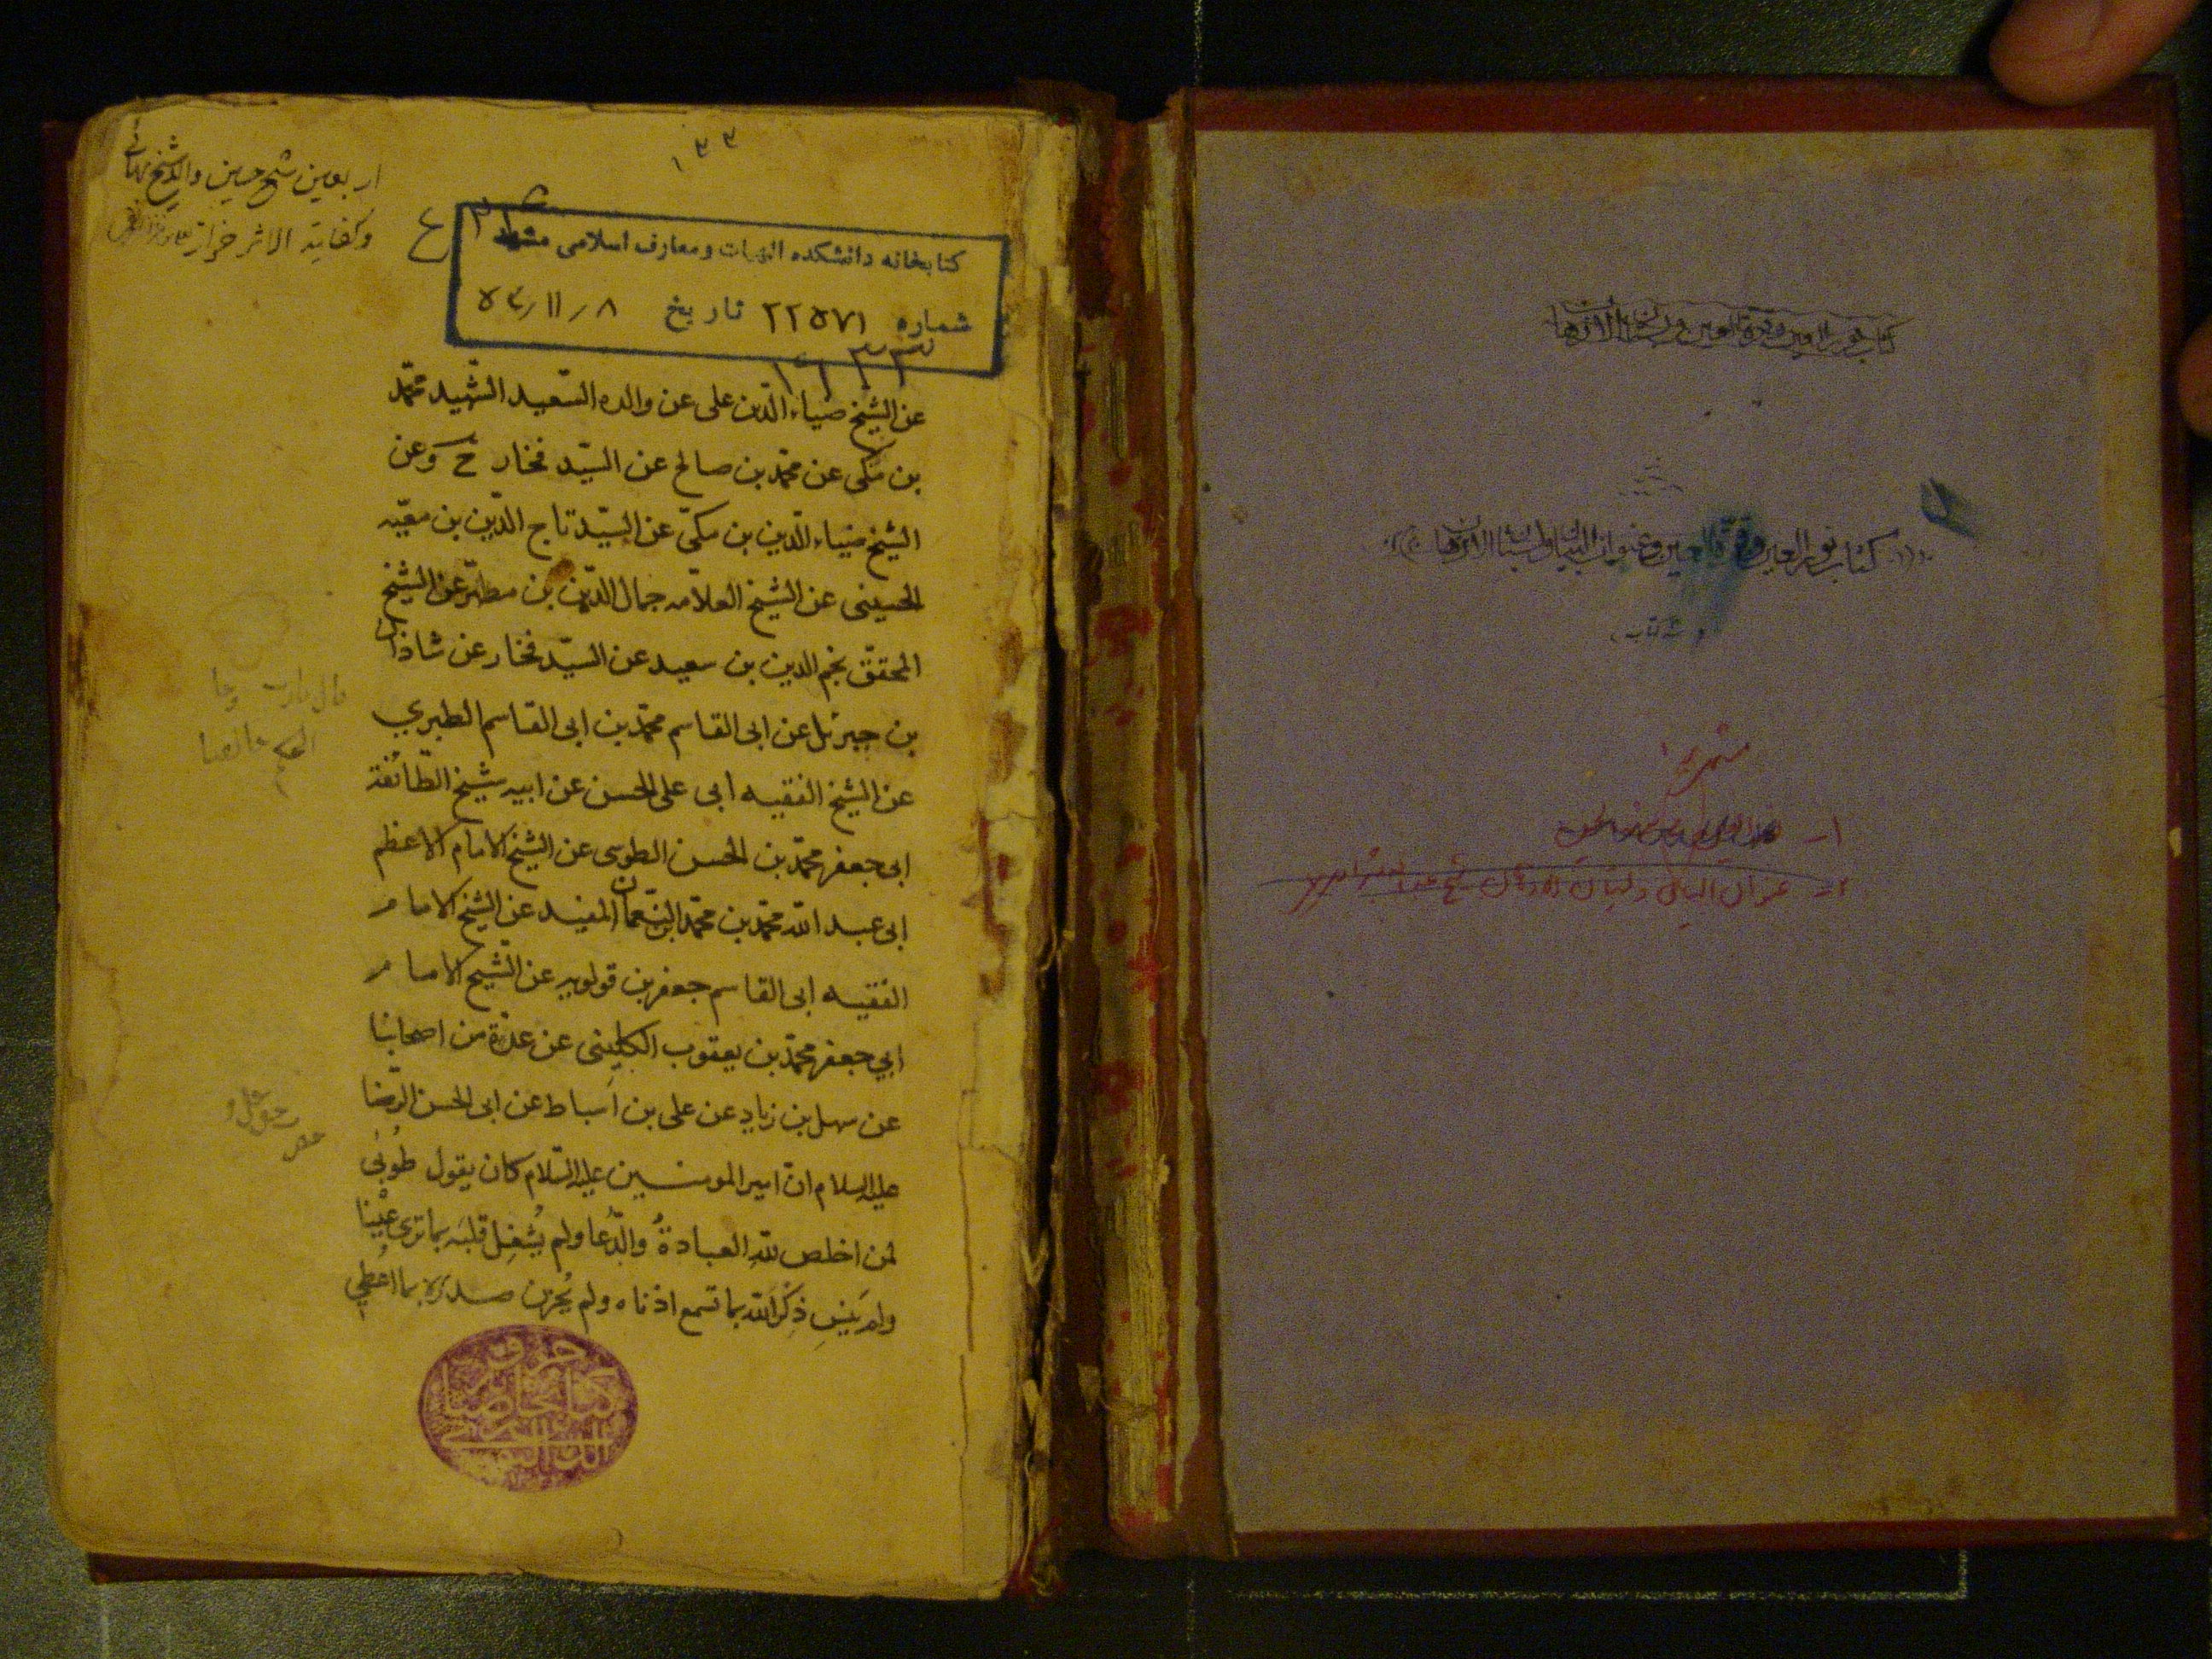 ١٣٣
اربعين شيخ حسين والد شيخ بهائى
وكفاية الاثر خزاز
كتابخانه دانشكده الهيات و معارف اسلامى مشهد
شماره ٢٢٥٧١ تاريخ ٥٤/١١/٨
عن الشيخ ضياء الدّين على عن والده السّعيد الشّهيد محمّد
بن مكى عن محمّد بن صالح عن السيّد فخار ح وعن
الشيخ ضياء الدّين بن مكىّ عن السيّد تاج الدّين بن معيّه
الحسينى عن الشيخ العلاّمه جمال الدّين بن مطهّر عن الشيخ
المحقق نجم الدين بن سعيد عن السيّد فخار عن شاذان
بن جبرئيل عن ابى القاسم محمّد بن ابى القاسم الطبري
عن الشيخ الفقيه ابى على الحسن عن ابيه شيخ الطّائفة
ابى جعفر محمّد بن الحسن الطوسى عن الشيخ الامام الاعظم
ابى عبد الله محمّد بن محمّد بن النعمان المفيد عن الشيخ الامام
الفقيه ابى القاسم جعفر بن قولويه عن الشّيخ الامام
ابي جعفر محمّد بن يعقوب الكلينى عن عدّة من اصحابنا
عن سهل بن زياد عن على بن اَسباط عن ابى الحسن الرّضا
عليه السلام ان امير المومنين عليه السّلام كان يقول طُوبٰى
لمن اخلص للّه العبادةُ والدُّعا ولم يُشغِل قلبَه بما ترى عَيْنا
ولم يَنسِ ذِكْرَ اللّه بما تسمع اذناه ولم يُحزن صدره بما اُعطِي
كتاب نور العين وقرة العين وعنوان البيان وبستان الاذهان
١ـ
٢ـ عنوان البيان و بستان الاذهان شيخ عبد الله